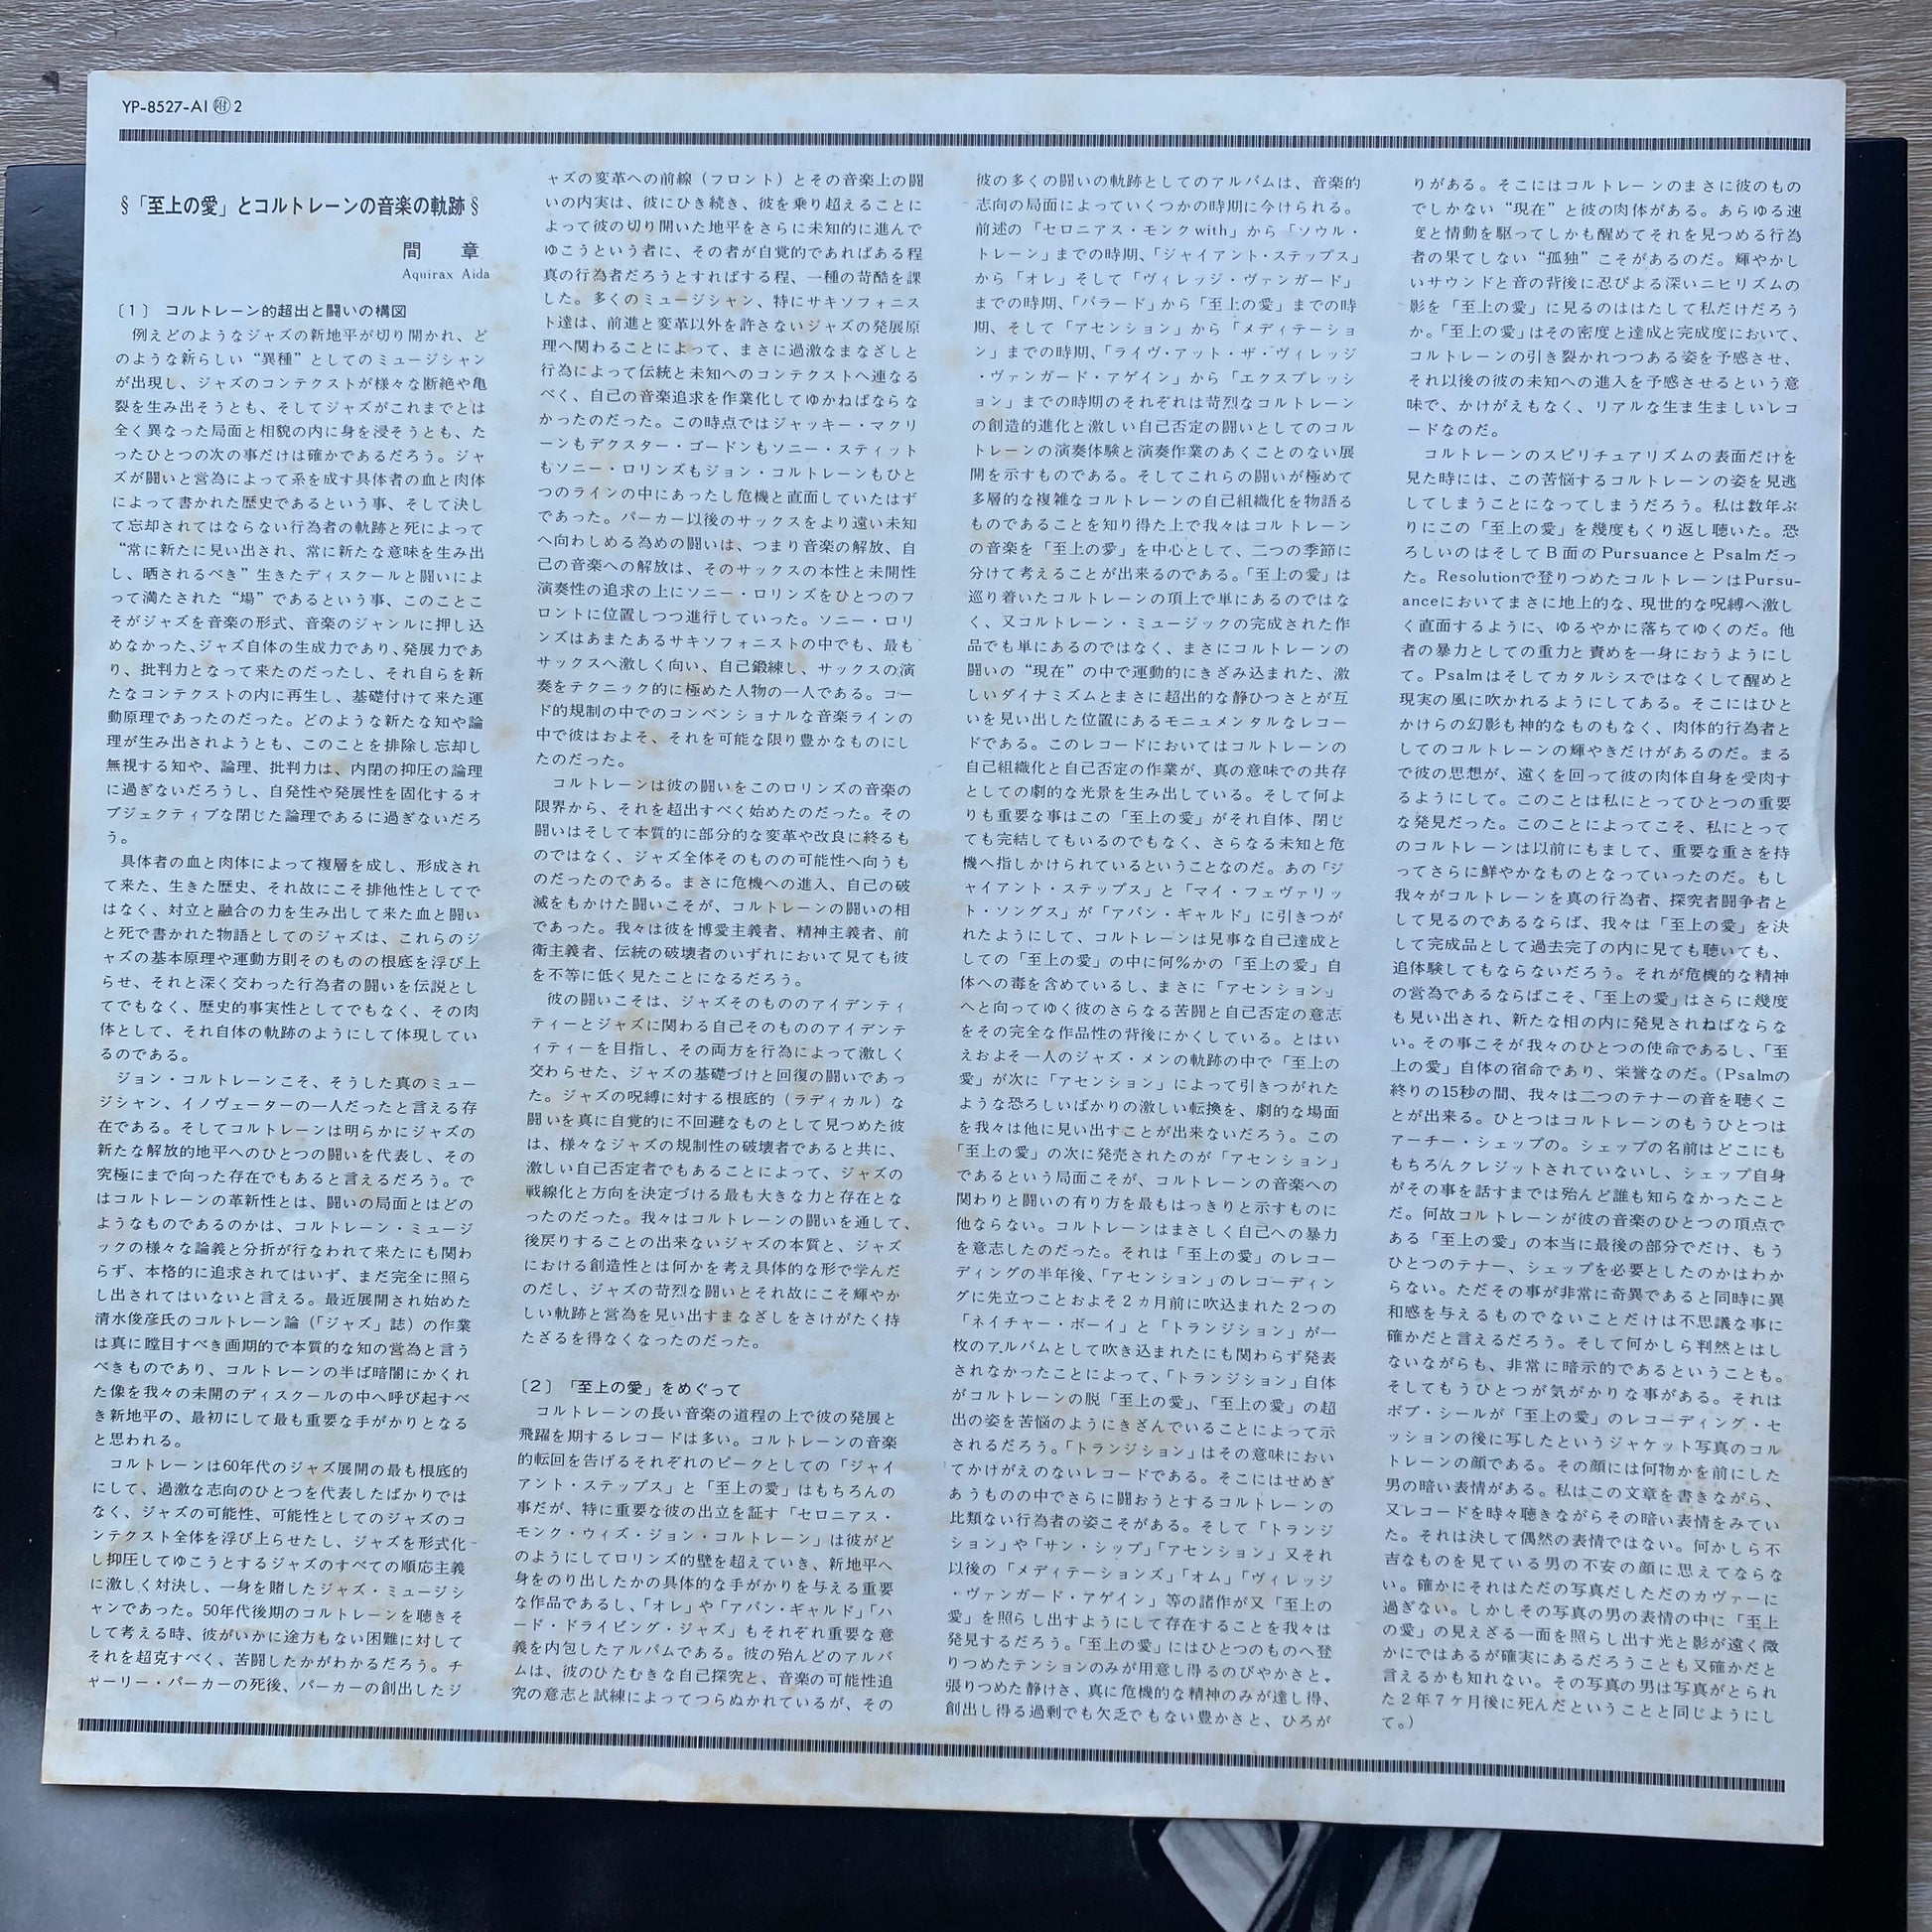 YP-8527-AI ㊕ 2
§「至上の愛」とコルトレーンの音楽の軌跡§
間 章
Aquirax Aida
〔1〕 コルトレーン的超出と闘いの構図
例えどのようなジャズの新地平が切り開かれ、ど
のような新らしい“異種”としてのミュージシャン
が出現し、ジャズのコンテクストが様々な断絶や亀
裂を生み出そうとも、そしてジャズがこれまでとは
全く異なった局面と相貌の内に身を浸そうとも、た
ったひとつの次の事だけは確かであるだろう。ジャ
ズが闘いと営為によって系を成す具体者の血と肉体
によって書かれた歴史であるという事、そして決し
て忘却されてはならない行為者の軌跡と死によって
“常に新たに見い出され、常に新たな意味を生み出
し、晒されるべき”生きたディスクールと闘いによ
って満たされた“場”であるという事、このことこ
そがジャズを音楽の形式、音楽のジャンルに押し込
めなかった、ジャズ自体の生成力であり、発展力であ
り、批判力となって来たのだったし、それ自らを新
たなコンテクストの内に再生し、基礎付けて来た運
動原理であったのだった。どのような新たな知や論
理が生み出されようとも、このことを排除し忘却し
無視する知や、論理、批判力は、内閉の抑圧の論理
に過ぎないだろうし、自発性や発展性を固化するオ
ブジェクティブな閉じた論理であるに過ぎないだろ
う。
具体者の血と肉体によって複層を成し、形成され
て来た、生きた歴史、それ故にこそ排他性としてで
はなく、対立と融合の力を生み出して来た血と闘い
と死で書かれた物語としてのジャズは、これらのジ
ャズの基本原理や運動方則そのものの根底を浮び上
らせ、それと深く交わった行為者の闘いを伝説とし
てでもなく、歴史的事実性としてでもなく、その肉
体として、それ自体の軌跡のようにして体現してい
るのである。
ジョン・コルトレーンこそ、そうした真のミュー
ジシャン、イノヴェーターの一人だったと言える存
在である。そしてコルトレーンは明らかにジャズの
新たな解放的地平へのひとつの闘いを代表し、その
究極にまで向った存在でもあると言えるだろう。で
はコルトレーンの革新性とは、闘いの局面とはどの
ようなものであるのかは、コルトレーン・ミュージ
ックの様々な論義と分折が行なわれて来たにも関わ
らず、本格的に追求されてはいず、まだ完全に照ら
し出されてはいないと言える。最近展開され始めた
清水俊彦氏のコルトレーン論（「ジャズ」誌）の作業
は真に瞠目すべき画期的で本質的な知の営為と言う
べきものであり、コルトレーンの半ば暗闇にかくれ
た像を我々の未開のディスクールの中へ呼び起すべ
き新地平の、最初にして最も重要な手がかりとなる
と思われる。
コルトレーンは60年代のジャズ展開の最も根底的
にして、過激な志向のひとつを代表したばかりでは
なく、ジャズの可能性、可能性としてのジャズのコ
ンテクスト全体を浮び上らせたし、ジャズを形式化
し抑圧してゆこうとするジャズのすべての順応主義
に激しく対決し、一身を賭したジャズ・ミュージシ
ャンであった。50年代後期のコルトレーンを聴きそ
して考える時、彼がいかに途方もない困難に対して
それを超克すべく、苦闘したかがわかるだろう。チ
ャーリー・パーカーの死後、パーカーの創出したジ
ャズの変革への前線（フロント）とその音楽上の闘
いの内実は、彼にひき続き、彼を乗り超えることに
よって彼の切り開いた地平をさらに未知的に進んで
ゆこうという者に、その者が自覚的であればある程
真の行為者だろうとすればする程、一種の苛酷を課
した。多くのミュージシャン、特にサキソフォニス
ト達は、前進と変革以外を許さないジャズの発展原
理へ関わることによって、まさに過激なまなざしと
行為によって伝統と未知へのコンテクストへ連なる
べく、自己の音楽追求を作業化してゆかねばならな
かったのだった。この時点ではジャッキー・マクリ
ーンもデクスター・ゴードンもソニー・スティット
もソニー・ロリンズもジョン・コルトレーンもひと
つのラインの中にあったし危機と直面していたはず
であった。パーカー以後のサックスをより遠い未知
へ向わしめる為めの闘いは、つまり音楽の解放、自
己の音楽への解放は、そのサックスの本性と未開性
演奏性の追求の上にソニー・ロリンズをひとつのフ
ロントに位置しつつ進行していった。ソニー・ロリ
ンズはあまたあるサキソフォニストの中でも、最も
サックスへ激しく向い、自己鍛練し、サックスの演
奏をテクニック的に極めた人物の一人である。コー
ド的規制の中でのコンベンショナルな音楽ラインの
中で彼はおよそ、それを可能な限り豊かなものにし
たのだった。
コルトレーンは彼の闘いをこのロリンズの音楽の
限界から、それを超出すべく始めたのだった。その
闘いはそして本質的に部分的な変革や改良に終るも
のではなく、ジャズ全体そのものの可能性へ向うも
のだったのである。まさに危機への進入、自己の破
滅をもかけた闘いこそが、コルトレーンの闘いの相
であった。我々は彼を博愛主義者、精神主義者、前
衛主義者、伝統の破壊者のいずれにおいて見ても彼
を不等に低く見たことになるだろう。
彼の闘いこそは、ジャズそのもののアイデンティ
ティーとジャズに関わる自己そのもののアイデンテ
ィティーを目指し、その両方を行為によって激しく
交わらせた、ジャズの基礎づけと回復の闘いであっ
た。ジャズの呪縛に対する根底的（ラディカル）な
闘いを真に自覚的に不回避なものとして見つめた彼
は、様々なジャズの規制性の破壊者であると共に、
激しい自己否定者でもあることによって、ジャズの
戦線化と方向を決定づける最も大きな力と存在とな
ったのだった。我々はコルトレーンの闘いを通して、
後戻りすることの出来ないジャズの本質と、ジャズ
における創造性とは何かを考え具体的な形で学んだ
のだし、ジャズの苛烈な闘いとそれ故にこそ輝やか
しい軌跡と営為を見い出すまなざしをさけがたく持
たざるを得なくなったのだった。
〔2〕「至上の愛」をめぐって
コルトレーンの長い音楽の道程の上で彼の発展と
飛躍を期するレコードは多い。コルトレーンの音楽
的転回を告げるそれぞれのピークとしての「ジャイ
アント・ステップス」と「至上の愛」はもちろんの
事だが、特に重要な彼の出立を証す「セロニアス・
モンク・ウィズ・ジョン・コルトレーン」は彼がど
のようにしてロリンズ的壁を超えていき、新地平へ
身をのり出したかの具体的な手がかりを与える重要
な作品であるし、「オレ」や「アバン・ギャルド」「ハ
ード・ドライビング・ジャズ」もそれぞれ重要な意
義を内包したアルバムである。彼の殆んどのアルバ
ムは、彼のひたむきな自己探究と、音楽の可能性追
究の意志と試練によってつらぬかれているが、その
彼の多くの闘いの軌跡としてのアルバムは、音楽的
志向の局面によっていくつかの時期に今けられる。
前述の「セロニアス・モンクwith」から「ソウル・
トレーン」までの時期、「ジャイアント・ステップス」
から「オレ」そして「ヴィレッジ・ヴァンガード」
までの時期、「バラード」から「至上の愛」までの時
期、そして「アセンション」から「メディテーショ
ン」までの時期、「ライヴ・アット・ザ・ヴィレッジ
・ヴァンガード・アゲイン」から「エクスプレッシ
ョン」までの時期のそれぞれは苛烈なコルトレーン
の創造的進化と激しい自己否定の闘いとしてのコル
トレーンの演奏体験と演奏作業のあくことのない展
開を示すものである。そしてこれらの闘いが極めて
多層的な複雑なコルトレーンの自己組織化を物語る
ものであることを知り得た上で我々はコルトレーン
の音楽を「至上の夢」を中心として、二つの季節に
分けて考えることが出来るのである。「至上の愛」は
巡り着いたコルトレーンの頂上で単にあるのではな
く、又コルトレーン・ミュージックの完成された作
品でも単にあるのではなく、まさにコルトレーンの
闘いの“現在”の中で運動的にきざみ込まれた、激
しいダイナミズムとまさに超出的な静ひつさとが互
いを見い出した位置にあるモニュメンタルなレコー
ドである。このレコードにおいてはコルトレーンの
自己組織化と自己否定の作業が、真の意味での共存
としての劇的な光景を生み出している。そして何よ
りも重要な事はこの「至上の愛」がそれ自体、閉じ
ても完結してもいるのでもなく、さらなる未知と危
機へ指しかけられているということなのだ。あの「ジ
ャイアント・ステップス」と「マイ・フェヴァリッ
ト・ソングス」が「アバン・ギャルド」に引きつが
れたようにして、コルトレーンは見事な自己達成と
しての「至上の愛」の中に何％かの「至上の愛」自
体への毒を含めているし、まさに「アセンション」
へと向ってゆく彼のさらなる苦闘と自己否定の意志
をその完全な作品性の背後にかくしている。とはい
えおよそ一人のジャズ・メンの軌跡の中で「至上の
愛」が次に「アセンション」によって引きつがれた
ような恐ろしいばかりの激しい転換を、劇的な場面
を我々は他に見い出すことが出来ないだろう。この
「至上の愛」の次に発売されたのが「アセンション」
であるという局面こそが、コルトレーンの音楽への
関わりと闘いの有り方を最もはっきりと示すものに
他ならない。コルトレーンはまさしく自己への暴力
を意志したのだった。それは「至上の愛」のレコー
ディングの半年後、「アセンション」のレコーディン
グに先立つことおよそ2カ月前に吹込まれた2つの
「ネイチャー・ボーイ」と「トランジション」が一
枚のアルバムとして吹き込まれたにも関わらず発表
されなかったことによって、「トランジション」自体
がコルトレーンの脱「至上の愛」、「至上の愛」の超
出の姿を苦悩のようにきざんでいることによって示
されるだろう。「トランジション」はその意味におい
てかけがえのないレコードである。そこにはせめぎ
あうものの中でさらに闘おうとするコルトレーンの
比類ない行為者の姿こそがある。そして「トランジ
ション」や「サン・シップ」「アセンション」又それ
以後の「メディテーションズ」「オム」「ヴィレッジ
・ヴァンガード・アゲイン」等の諸作が又「至上の
愛」を照らし出すようにして存在することを我々は
発見するだろう。「至上の愛」にはひとつのものへ登
りつめたテンションのみが用意し得るのびやかさと、
張りつめた静けさ、真に危機的な精神のみが達し得、
創出し得る過剰でも欠乏でもない豊かさと、ひろが
りがある。そこにはコルトレーンのまさに彼のもの
でしかない“現在”と彼の肉体がある。あらゆる速
度と情動を駆ってしかも醒めてそれを見つめる行為
者の果てしない“孤独”こそがあるのだ。輝やかし
いサウンドと音の背後に忍びよる深いニヒリズムの
影を「至上の愛」に見るのははたして私だけだろう
か。「至上の愛」はその密度と達成と完成度において、
コルトレーンの引き裂かれつつある姿を予感させ、
それ以後の彼の未知への進入を予感させるという意
味で、かけがえもなく、リアルな生ま生ましいレコ
ードなのだ。
コルトレーンのスピリチュアリズムの表面だけを
見た時には、この苦悩するコルトレーンの姿を見逃
してしまうことになってしまうだろう。私は数年ぶ
りにこの「至上の愛」を幾度もくり返し聴いた。恐
ろしいのはそしてB面のPursuanceとPsalmだっ
た。Resolutionで登りつめたコルトレーンはPursu-
anceにおいてまさに地上的な、現世的な呪縛へ激し
く直面するように、ゆるやかに落ちてゆくのだ。他
者の暴力としての重力と責めを一身におうようにし
て。Psalmはそしてカタルシスではなくして醒めと
現実の風に吹かれるようにしてある。そこにはひと
かけらの幻影も神的なものもなく、肉体的行為者と
してのコルトレーンの輝やきだけがあるのだ。まる
で彼の思想が、遠くを回って彼の肉体自身を受肉す
るようにして。このことは私にとってひとつの重要
な発見だった。このことによってこそ、私にとって
のコルトレーンは以前にもまして、重要な重さを持
ってさらに鮮やかなものとなっていったのだ。もし
我々がコルトレーンを真の行為者、探究者闘争者と
して見るのであるならば、我々は「至上の愛」を決
して完成品として過去完了の内に見ても聴いても、
追体験してもならないだろう。それが危機的な精神
の営為であるならばこそ、「至上の愛」はさらに幾度
も見い出され、新たな相の内に発見されねばならな
い。その事こそが我々のひとつの使命であるし、「至
上の愛」自体の宿命であり、栄誉なのだ。（Psalmの
終りの15秒の間、我々は二つのテナーの音を聴くこ
とが出来る。ひとつはコルトレーンのもうひとつは
アーチー・シェップの。シェップの名前はどこにも
もちろんクレジットされていないし、シェップ自身
がその事を話すまでは殆んど誰も知らなかったこと
だ。何故コルトレーンが彼の音楽のひとつの頂点で
ある「至上の愛」の本当に最後の部分でだけ、もう
ひとつのテナー、シェップを必要としたのかはわか
らない。ただその事が非常に奇異であると同時に異
和感を与えるものでないことだけは不思議な事に
確かだと言えるだろう。そして何かしら判然とはし
ないながらも、非常に暗示的であるということも。
そしてもうひとつが気がかりな事がある。それは
ボブ・シールが「至上の愛」のレコーディング・セ
ッションの後に写したというジャケット写真のコル
トレーンの顔である。その顔には何物かを前にした
男の暗い表情がある。私はこの文章を書きながら、
又レコードを時々聴きながらその暗い表情をみてい
た。それは決して偶然の表情ではない。何かしら不
吉なものを見ている男の不安の顔に思えてならな
い。確かにそれはただの写真だしただのカヴァーに
過ぎない。しかしその写真の男の表情の中に「至上
の愛」の見えざる一面を照らし出す光と影が遠く微
かにではあるが確実にあるだろうことも又確かだと
言えるかも知れない。その写真の男は写真がとられ
た2年7ヶ月後に死んだということと同じようにし
て。）